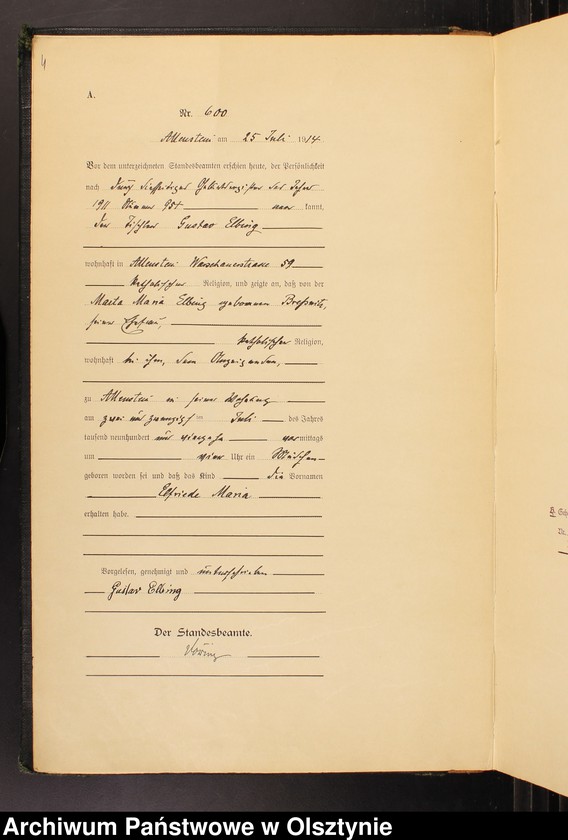 4
A.
Nr. 600
Allenstein am 25 Juli 1914
Vor dem unterzeichneten Standesbeamten erschien heute, der Persönlichkeit
nach durch hiesigen der Jahre
1911 Nummer 954 kannt,
der Tischler Gustav Elbing
wohnhaft in Allenstein Warschauerstrasse 59
katholischer Religion, und zeigte an, daß von der
Maria Elbing geborenen
seiner Ehefrau,
katholischer Religion,
wohnhaft bei ihm, dem Anzeigenden,
zu Allenstein in seiner Wohnung
am zwei und zwanzigsten Juli des Jahres
tausend neunhundert und vierzehn vormittags
um vier Uhr ein Mädchen
geboren worden sei und daß das Kind die Vornamen
Elfriede Maria
erhalten habe.
Vorgelesen, genehmigt und unterschrieben
Gustav Elbing
Der Standesbeamte.
B.
Archiwum Państwowe w Olsztynie